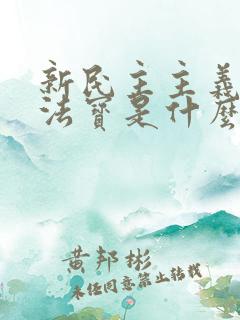 新民主主義
法寶是什麼
黄邦彬
未经同意禁止转载